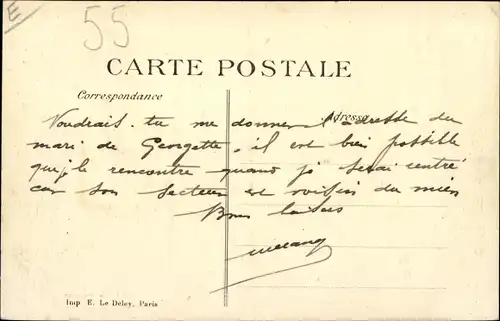 E
55
CARTE POSTALE
Correspondance
Adresse
Voudrais-tu me donner l'adresse du
mari de Georgette, il est bien possible
que je le rencontre quand je serai rentré
car son secteur est voisin du mien
Bons baisers
Imp E. Le Deley, Paris